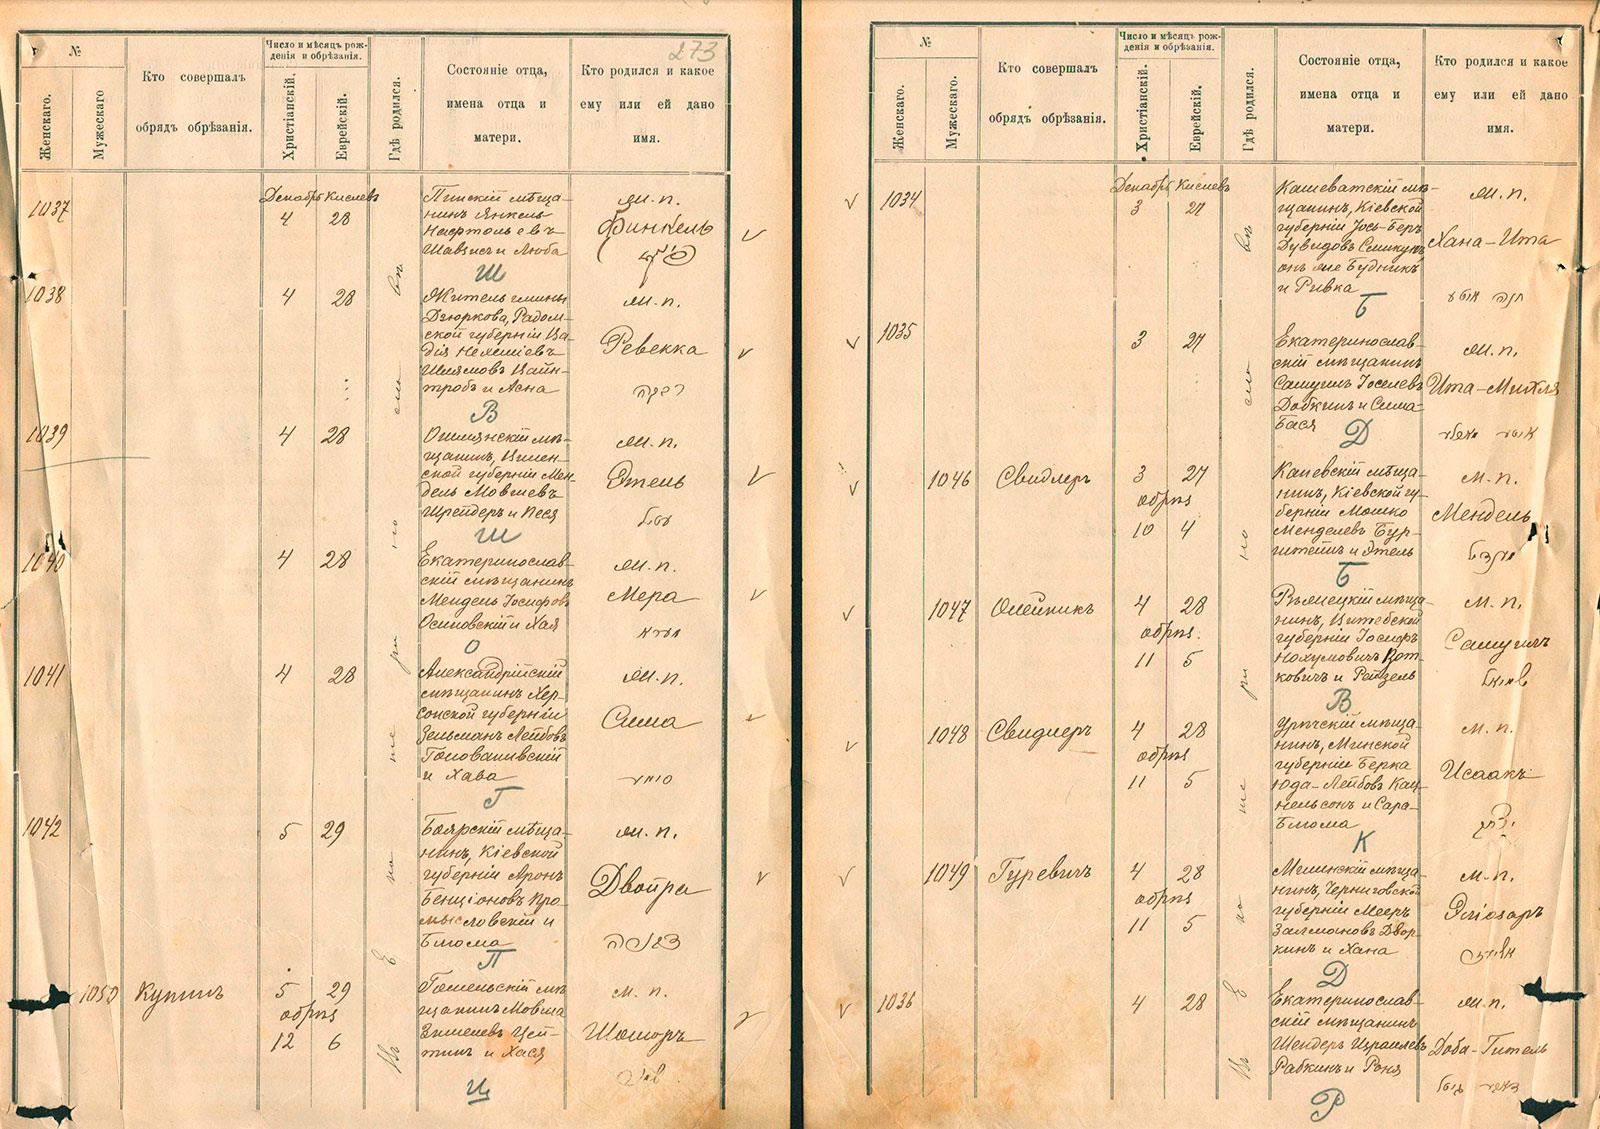 273
№
Женскаго.
Мужескаго
Кто совершалъ
обрядъ обрѣзанія.
Число и мѣсяцъ рож-
денія и обрѣзанія.
Христіанскій.
Еврейскій.
Гдѣ родился.
Состояніе отца,
имена отца и
матери.
Кто родился и какое
ему или ей дано
имя.
Декабрь Кислевъ
1037
4 28
Пинскій мѣща-
нинъ Янкель
и Люба
м. п.
Финкель
Ш
1038
4 28
Житель гмины
Радом-
ской губерніи
и Асна
м. п.
Ревекка
רבקה
В
1039
4 28
Ошмянскій мѣ-
щанинъ, Вилен-
ской губерніи Мен-
дель Мовшевъ
Шрейдеръ и Песя
м. п.
Этель
עטל
Ш
1040
4 28
Екатеринослав-
скій мѣщанинъ
Мендель Іосифовъ
Осиповскій и Хая
м. п.
Мера
О
1041
4 28
Александрійскій
мѣщанинъ Хер-
сонской губерніи
Зельманъ Лейбовъ
и Хава
м. п.
Сима
סימא
Г
1042
5 29
Боярскій мѣща-
нинъ, Кіевской
губерніи Аронъ
Бенціоновъ Про-
мысловскій и
Блюма
м. п.
Двойра
П
1050
Купинъ
5 29
обрѣз
12 6
Гомельскій мѣ-
щанинъ Мовша
Цей-
тлинъ и Хася
м. п.
Ц
Въ Е ка те ри но сла вѣ
№
Женскаго.
Мужескаго.
Кто совершалъ
обрядъ обрѣзанія.
Число и мѣсяцъ рож-
денія и обрѣзанія.
Христіанскій.
Еврейскій.
Гдѣ родился.
Состояніе отца,
имена отца и
матери.
Кто родился и какое
ему или ей дано
имя.
Декабрь Кислевъ
1034
3 27
Кашеватскій мѣ-
щанинъ, Кіевской
губерніи Іось-Беръ
Дувидовъ
онъ же Будникъ
и Ривка
м. п.
Хана-Ита
חנה איטע
Б
1035
3 27
Екатеринослав-
скій мѣщанинъ
Самуилъ Іоселевъ
Добкинъ и Сима
Бася
м. п.
Ита-Михля
Д
1046
Свидлеръ
3 27
обрѣз
10 4
Каневскій мѣща-
нинъ, Кіевской гу-
берніи Мошко
Менделевъ Бур-
штейнъ и Этель
м. п.
Мендель
מענדל
Б
1047
Олейникъ
4 28
обрѣз.
11 5
мѣща-
нинъ, Витебской
губерніи Іосифъ
Нохумовичъ Вот-
ковичъ и Рейзель
м. п.
Самуилъ
שמואל
В
1048
Свидлеръ
4 28
обрѣз
11 5
мѣща-
нинъ, Минской
губерніи Берка
Юда-Лейбовъ Кац-
нельсонъ и Сара-
Блюма
м. п.
Исаакъ
יצחק
К
1049
Гуревичъ
4 28
обрѣз
11 5
Мглинскій мѣща-
нинъ, Черниговской
губерніи Мееръ
Залмановъ Двор-
кинъ и Хана
м. п.
Д
1036
4 28
Екатеринослав-
скій мѣщанинъ
Шендеръ Израилевъ
Рабкинъ и Роня
м. п.
Доба-Гитель
Р
Въ Е ка те ри но сла вѣ